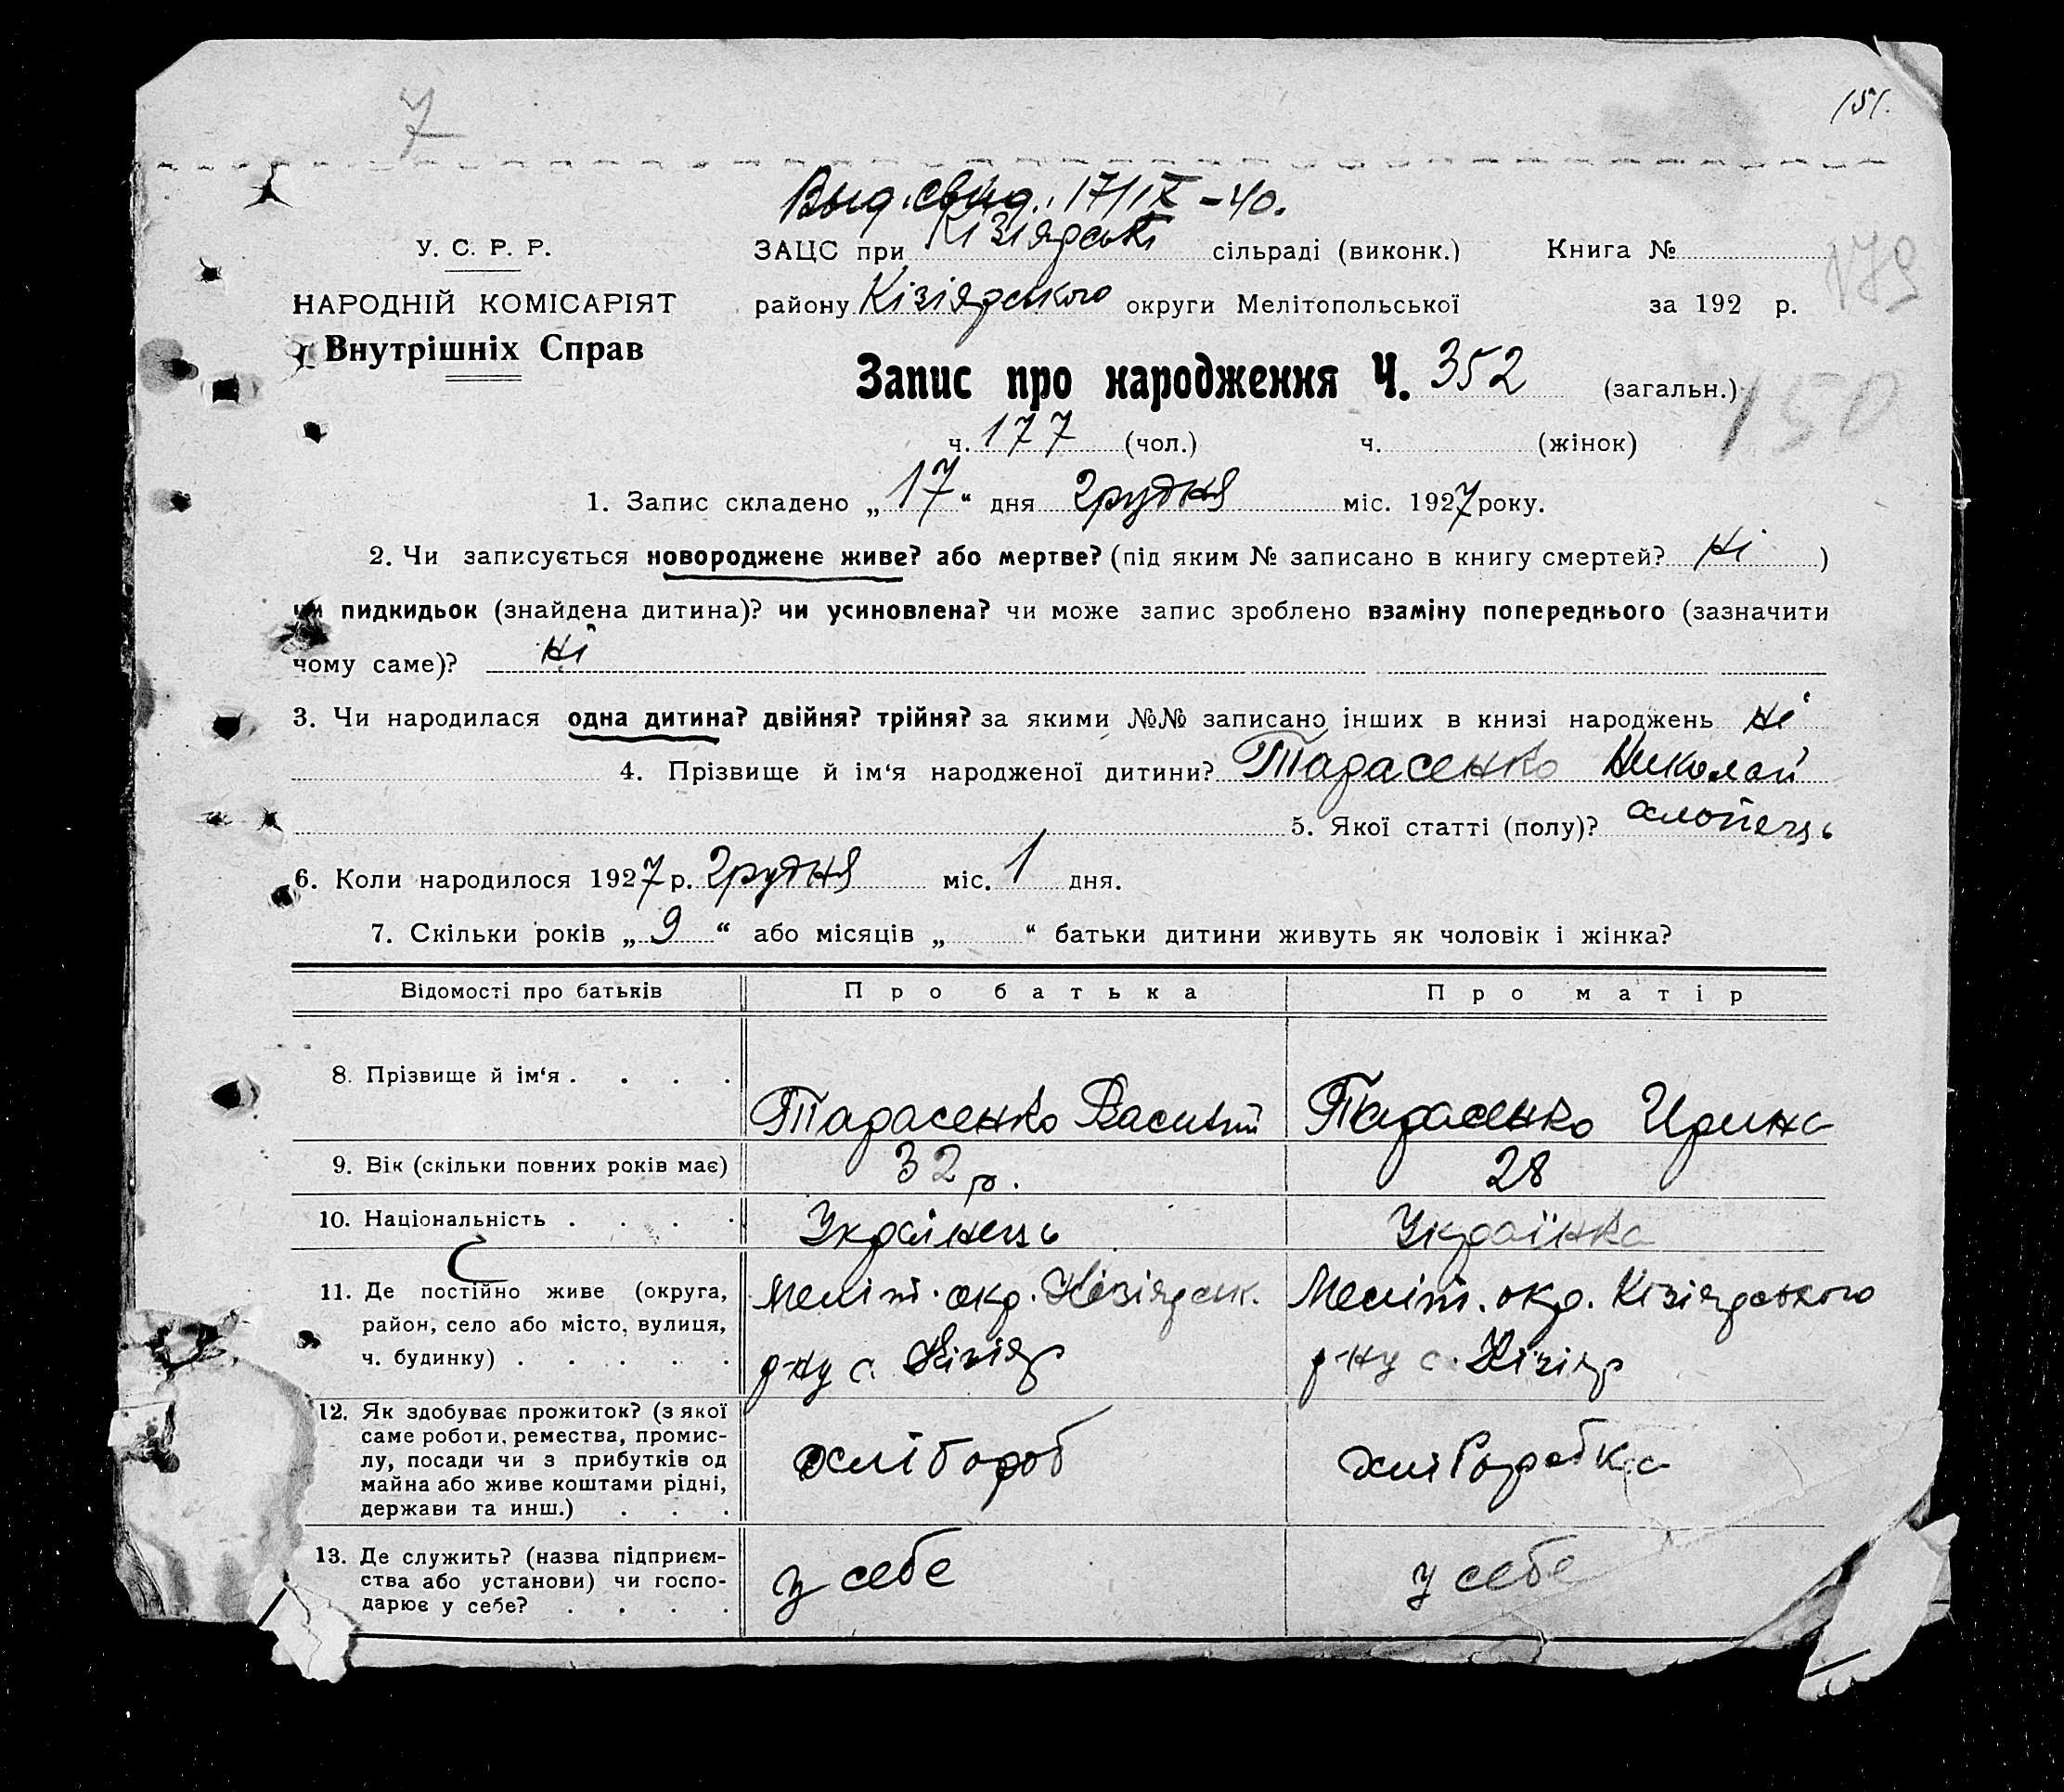 7
151.
Выд. свид. 17/IX -40.
У. С. Р. Р.
ЗАЦС при Кізіярські сільраді (виконк.) Книга №
179
НАРОДНІЙ КОМІСАРІЯТ
району Кізіярського округи Мелітопольської за 192 р.
Внутрішніх Справ
Запис про народження Ч. 352 (загальн.)
150
ч. 177 (чол.) ч. (жінок)
1. Запис складено „ 17 “ дня грудня міс. 1927 року.
2. Чи записується новороджене живе? або мертве? (під яким № записано в книгу смертей? Ні )
чи пидкидьок (знайдена дитина)? чи усиновлена? чи може запис зроблено взаміну попереднього (зазначити
чому саме)? Ні
3. Чи народилася одна дитина? двійня? трійня? за якими №№ записано інших в книзі народжень Ні
4. Прізвище й ім‘я народженої дитини? Тарасенко Николай
5. Якої статті (полу)? хлопець
6. Коли народилося 1927 р. грудня міс. 1 дня.
7. Скільки років „ 9 “ або місяців „ “ батьки дитини живуть як чоловік і жінка?
Відомості про батьків Про батька Про матір
8. Прізвище й ім‘я . . . .
Тарасенко Василий Тарасенко Ирина
9. Вік (скільки повних років має) 32 р. 28
10. Національність . . . . Українець Українка
11. Де постійно живе (округа, Меліт. окр. Кізіярськ. Меліт. окр. Кізіярського
район, село або місто, вулиця,
ч. будинку) . . . . . р-ну с. Кізіяр р-ну с. Кізіяр
12. Як здобуває прожиток? (з якої
саме роботи, ремества, промис-
лу, посади чи з прибутків од хлібороб хліборобка
майна або живе коштами рідні,
держави та инш.) . . .
13. Де служить? (назва підприєм-
ства або установи) чи госпо- у себе у себе
дарює у себе? . . . .